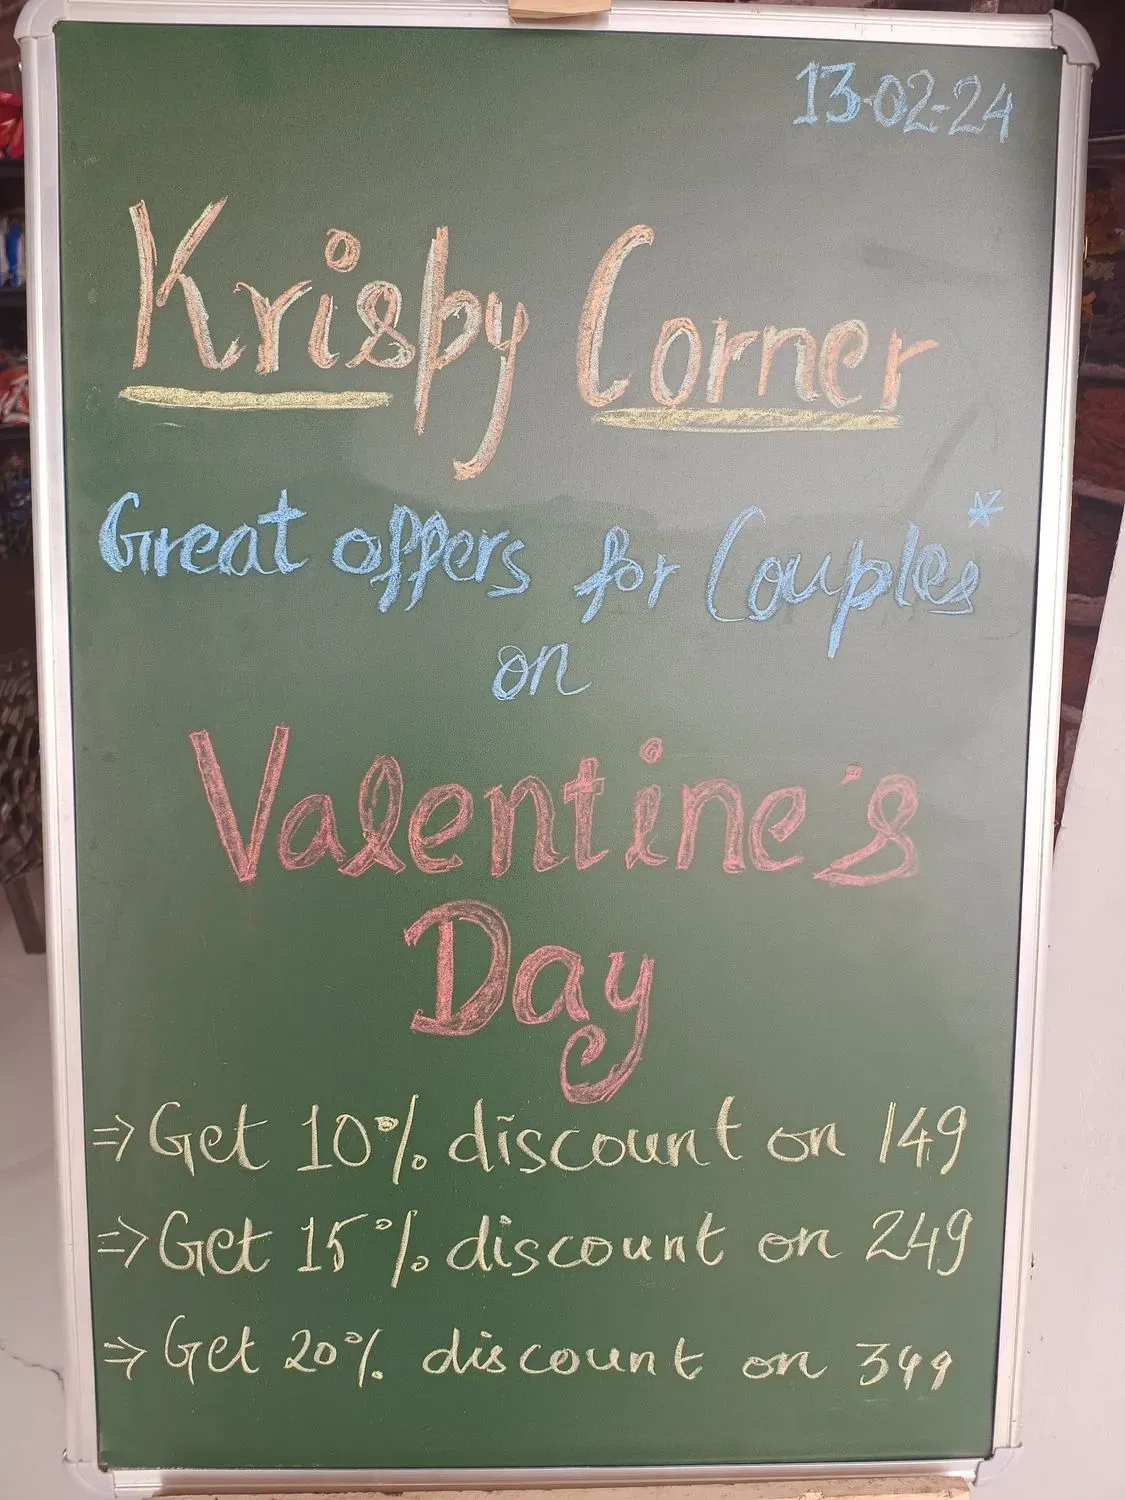 13-02-24
Krispy Corner
Great offers for Couples*
on
Valentine's
Day
⇒ Get 10% discount on 149
⇒ Get 15% discount on 249
⇒ Get 20% discount on 349